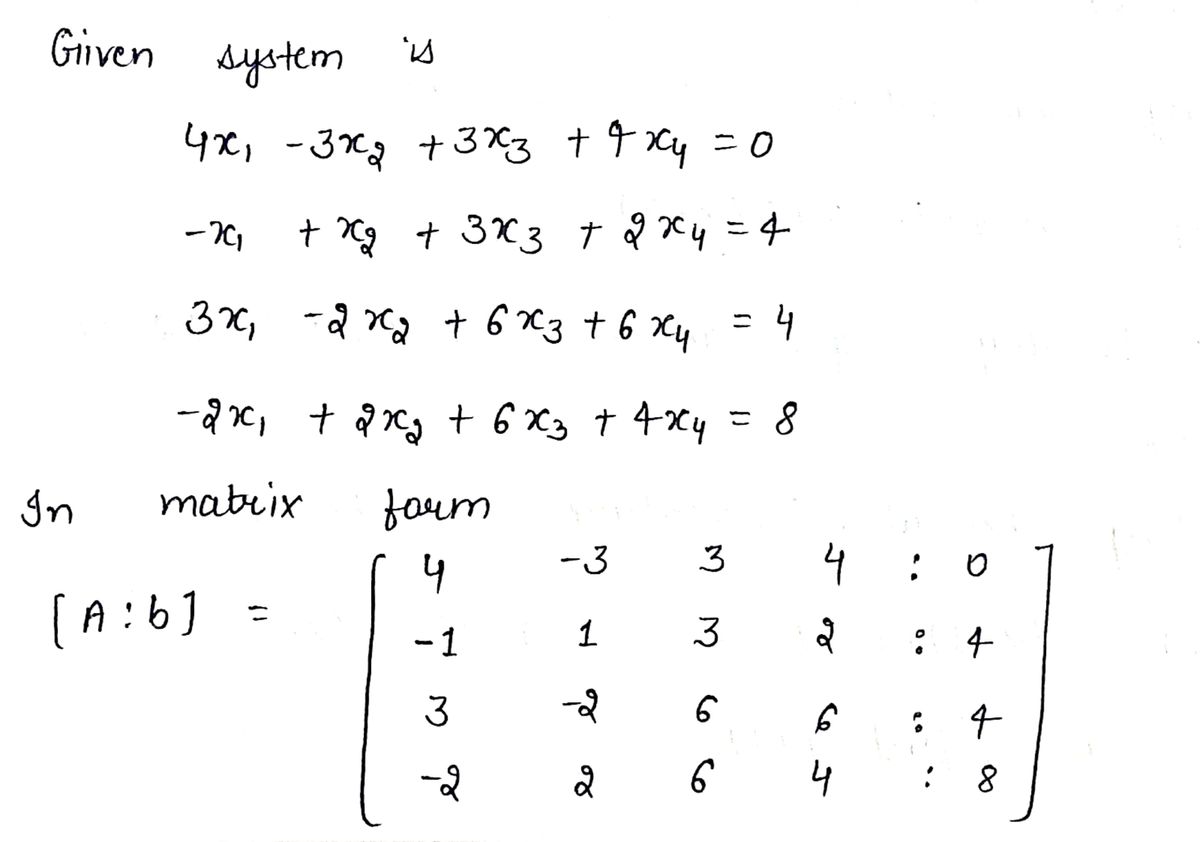 Given system is
4x₁ - 3x₂ + 3x₃ + 4x₄ = 0
-x₁ + x₂ + 3x₃ + 2x₄ = 4
3x₁ - 2x₂ + 6x₃ + 6x₄ = 4
-2x₁ + 2x₂ + 6x₃ + 4x₄ = 8
In matrix form
4 -3 3 4 : 0
[A:b] =
-1 1 3 2 : 4
3 -2 6 6 : 4
-2 2 6 4 : 8